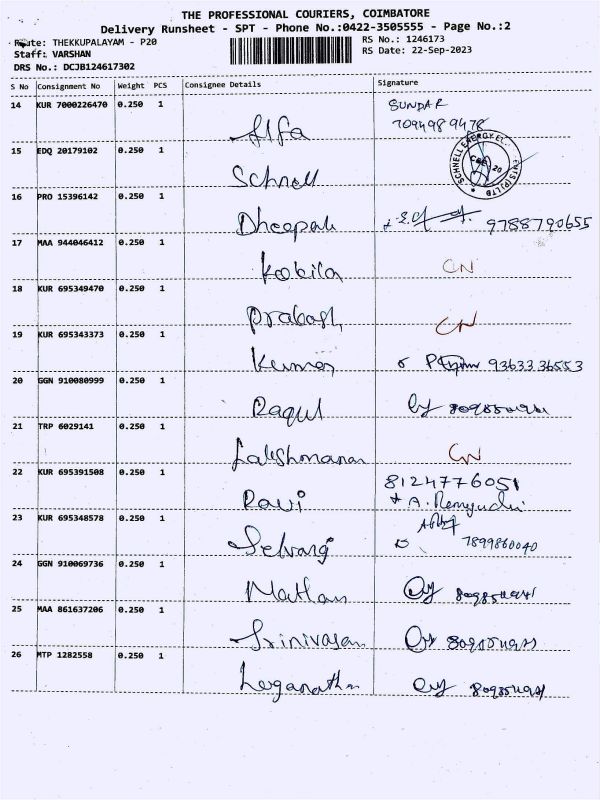 THE PROFESSIONAL COURIERS, COIMBATORE
Delivery Runsheet - SPT - Phone No.:0422-3505555 - Page No.:2
Route: THEKKUPALAYAM - P20 RS No.: 1246173
Staff: VARSHAN RS Date: 22-Sep-2023
DRS No.: DCJB124617302
S No Consignment No Weight PCS Consignee Details Signature
14 KUR 7000226470 0.250 1 SUNDAR
Alfa 7094989478
15 EDQ 20179102 0.250 1
Schnell SCHNELL ENERGY
16 PRO 15396142 0.250 1
Dheepak 9788790655
17 MAA 944046412 0.250 1
Kokila CN
18 KUR 695349470 0.250 1
Prakash CN
19 KUR 695343373 0.250 1
Kumar 9363336553
20 GGN 910080999 0.250 1
Ragul
21 TRP 6029141 0.250 1
Lakshmanan CN
22 KUR 695391508 0.250 1 8124776051
Ravi A.
23 KUR 695348578 0.250 1
Selvaraj 7899860040
24 GGN 910069736 0.250 1
Nathan
25 MAA 861637206 0.250 1
Srinivasan
26 MTP 1282558 0.250 1
Loganathan